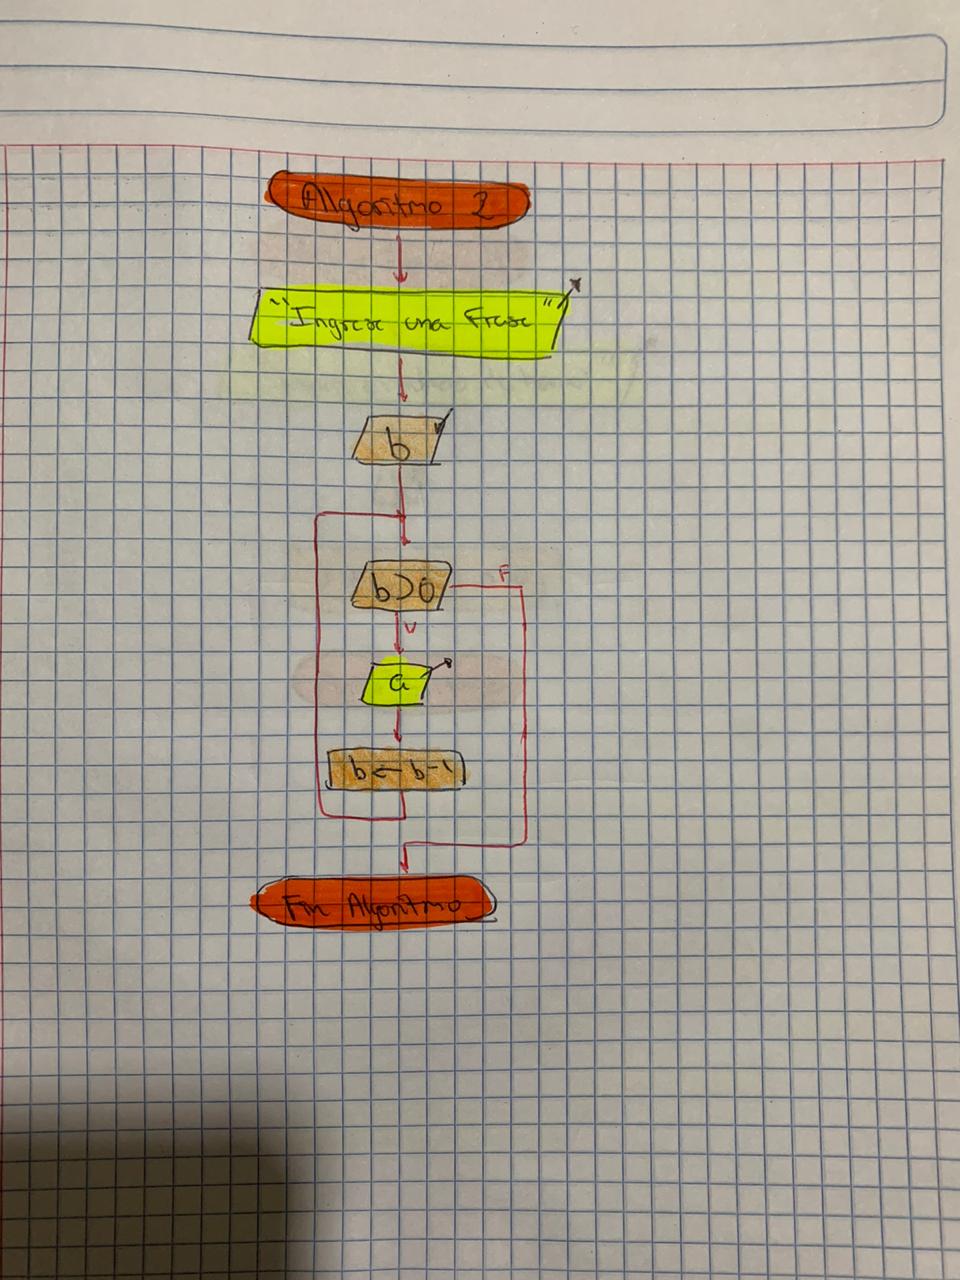 Algoritmo 2
"Ingrese una Frase"
b
b>0
F
V
a
b ← b-1
Fin Algoritmo